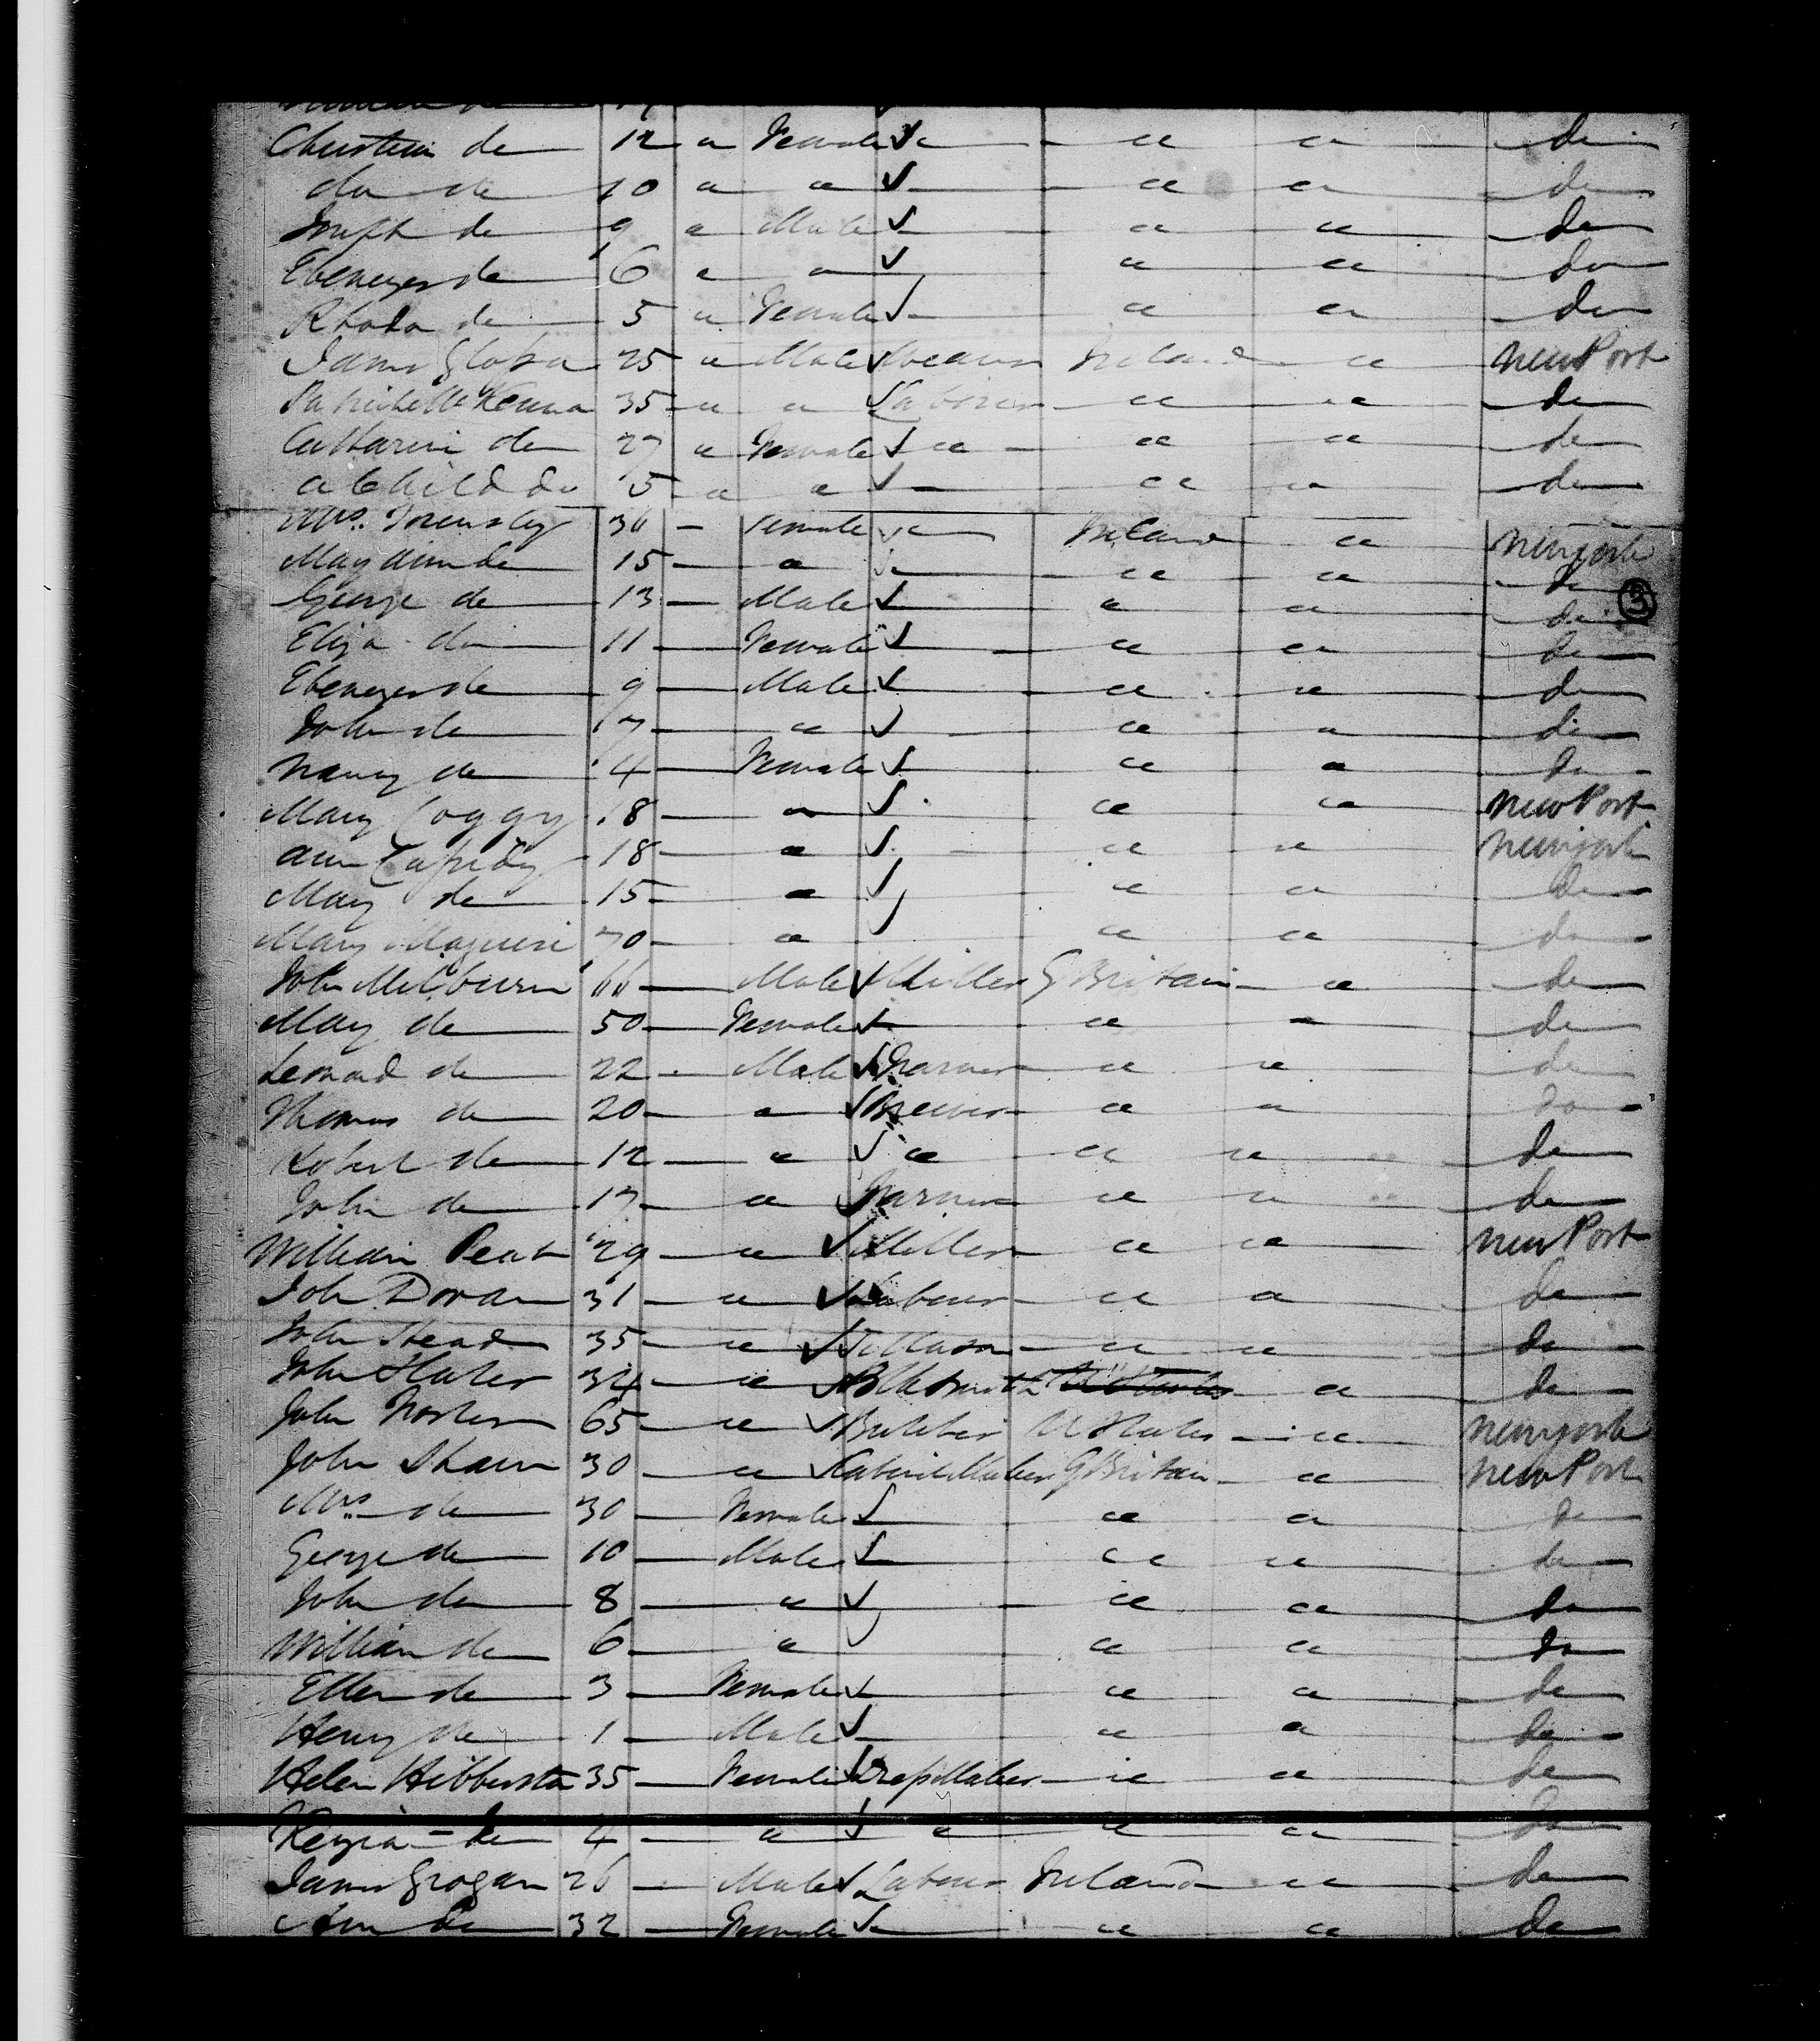 12 " Female " " " do
do do 10 " " " " do
Joseph do 9 " Male " " do
Ebenezer do 6 " " " " do
Rhoda do 5 " Female " " do
James 25 " Male Ireland " New Port
Patrick McKenna 35 " " Laborer " " do
Catharine do 27 " Female " " " do
a Child do 5 " " " " do
Mrs. 36 Female " Ireland " New york
Mary Ann do 15 " " " " do
③
George do 13 Male " " do
Eliza do 11 Female " " do
Ebenezer do 9 Male " " do
John do 7 " " " do
Nancy do 4 Female " " do
Mary Coggy 18 " " " New Port
Ann Cassidy 18 " " " New york
Mary do 15 " " " do
Mary Maguire 70 " " " do
John Milbourn 66 Male Miller G Britain " do
Mary do 50 Female " " do
Leonard do 22 Male Farmer " " do
Thomas do 20 " Brewer " " do
Robert do 12 " " " " do
John do 17 " Farmer " " do
William Peat 29 " Miller " " New Port
John Doran 31 " Labour " " do
John Head 35 " " " do
John Slater 34 " Blksmith " do
John 65 " Butcher U States " New york
John Shaw 30 " Cabinet Maker G Britain " New Port
Mrs do 30 Female " " do
George do 10 Male " " do
John do 8 " " " do
William do 6 " " " do
Ellen do 3 Female " " do
Henry do 1 Male " " do
Helen 35 Female Dress Maker " " do
Kezia do 4 " " " " do
James Grogan 26 Male Labour Ireland " do
Ann do 32 Female " " " do